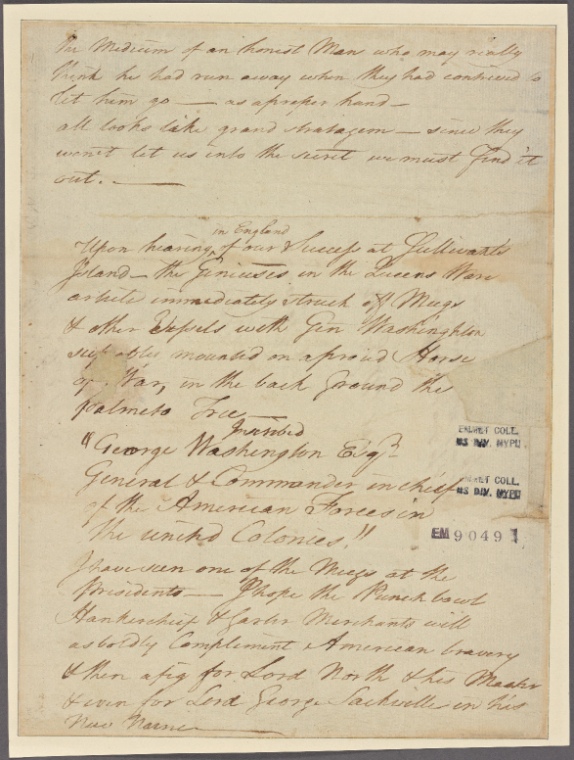 The Medium of an honest Man who may really
think he had run away when they had contrived to
let him go — as a proper hand —
all looks like grand stratagem — since they
won't let us into the secret we must find it
out. —
in England
Upon hearing of our Success at Sullivants
Island — the Geniuses in the Queens Ware
immediately struck off Mugs
& other Vessels with Gen Washinghton
mounted on a proud Horse
of War, in the back ground the
palmeto Tree —
Inscribed
"George Washington Esqr
General & Commander in chief
of the American Forces in
the united Colonies."
I have seen one of the Mugs at the
Presidents — I hope the Punch bowl
Hankerchief & Garter Merchants will
as boldly Compliment American bravery
& then a fig for Lord North & his Master
& even for Lord George Sackville in his
New Name —
EMMET COLL.
MS DIV. NYPL
EMMET COLL.
MS DIV. NYPL
EM 9049